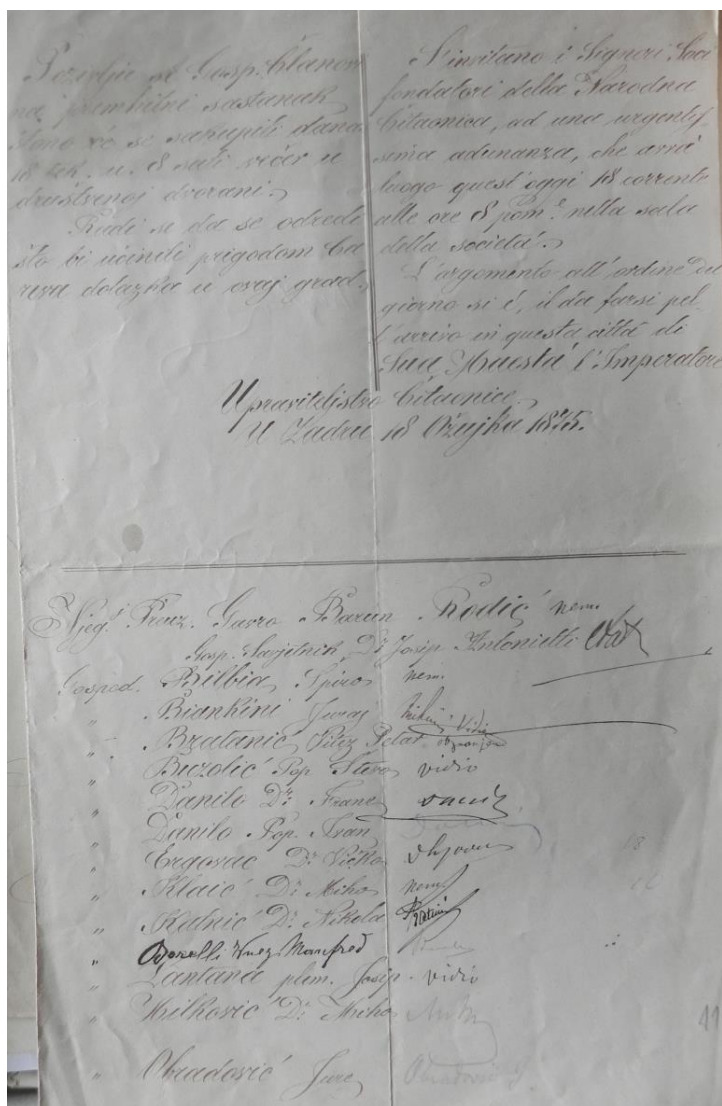 Pozivlju se Gosp. Članovi
na prvanhitni sastanak
što no će se sakupiti dana
18 tek. u 8 sati večer u
društvenoj dvorani.
Radi se da se odredi
što bi učiniti prigodom Ca
reva dolazka u ovaj grad.
S'invitano i Signori Soci
fondatori della Narodna
Čitaonica, ad una urgentis-
sima adunanza, che avrà
luogo quest'oggi 18 corrente
alle ore 8 pom.e nella sala
della società.
L'argomento all'ordine del
giorno si è, il da farsi pel-
l'arrivo in questa città di
Sua Maestà l'Imperatore
Upraviteljstvo Čitaonice.
U Zadru 18 Ožujka 1875.
Njeg. Preuz. Gavro Barun Rodić nema
Gosp. Savjetnik Dr. Josip Antonietti
Gospod. Bilbia Spiro nema
" Biankini Juraj
" Bratanić Vitez Petar
" Buzolić Pop Stevo vidio
" Danilo Dr. Frane
" Danilo Pop. Ivan
" Ergovac Dr. Vicko
" Klaić Dr. Miho nema
" Katnić Dr. Nikola
" Borelli Knez Manfred
" Lantana plem. Josip vidio
" Milković Dr. Miho
" Obradović Jure Obradović J.